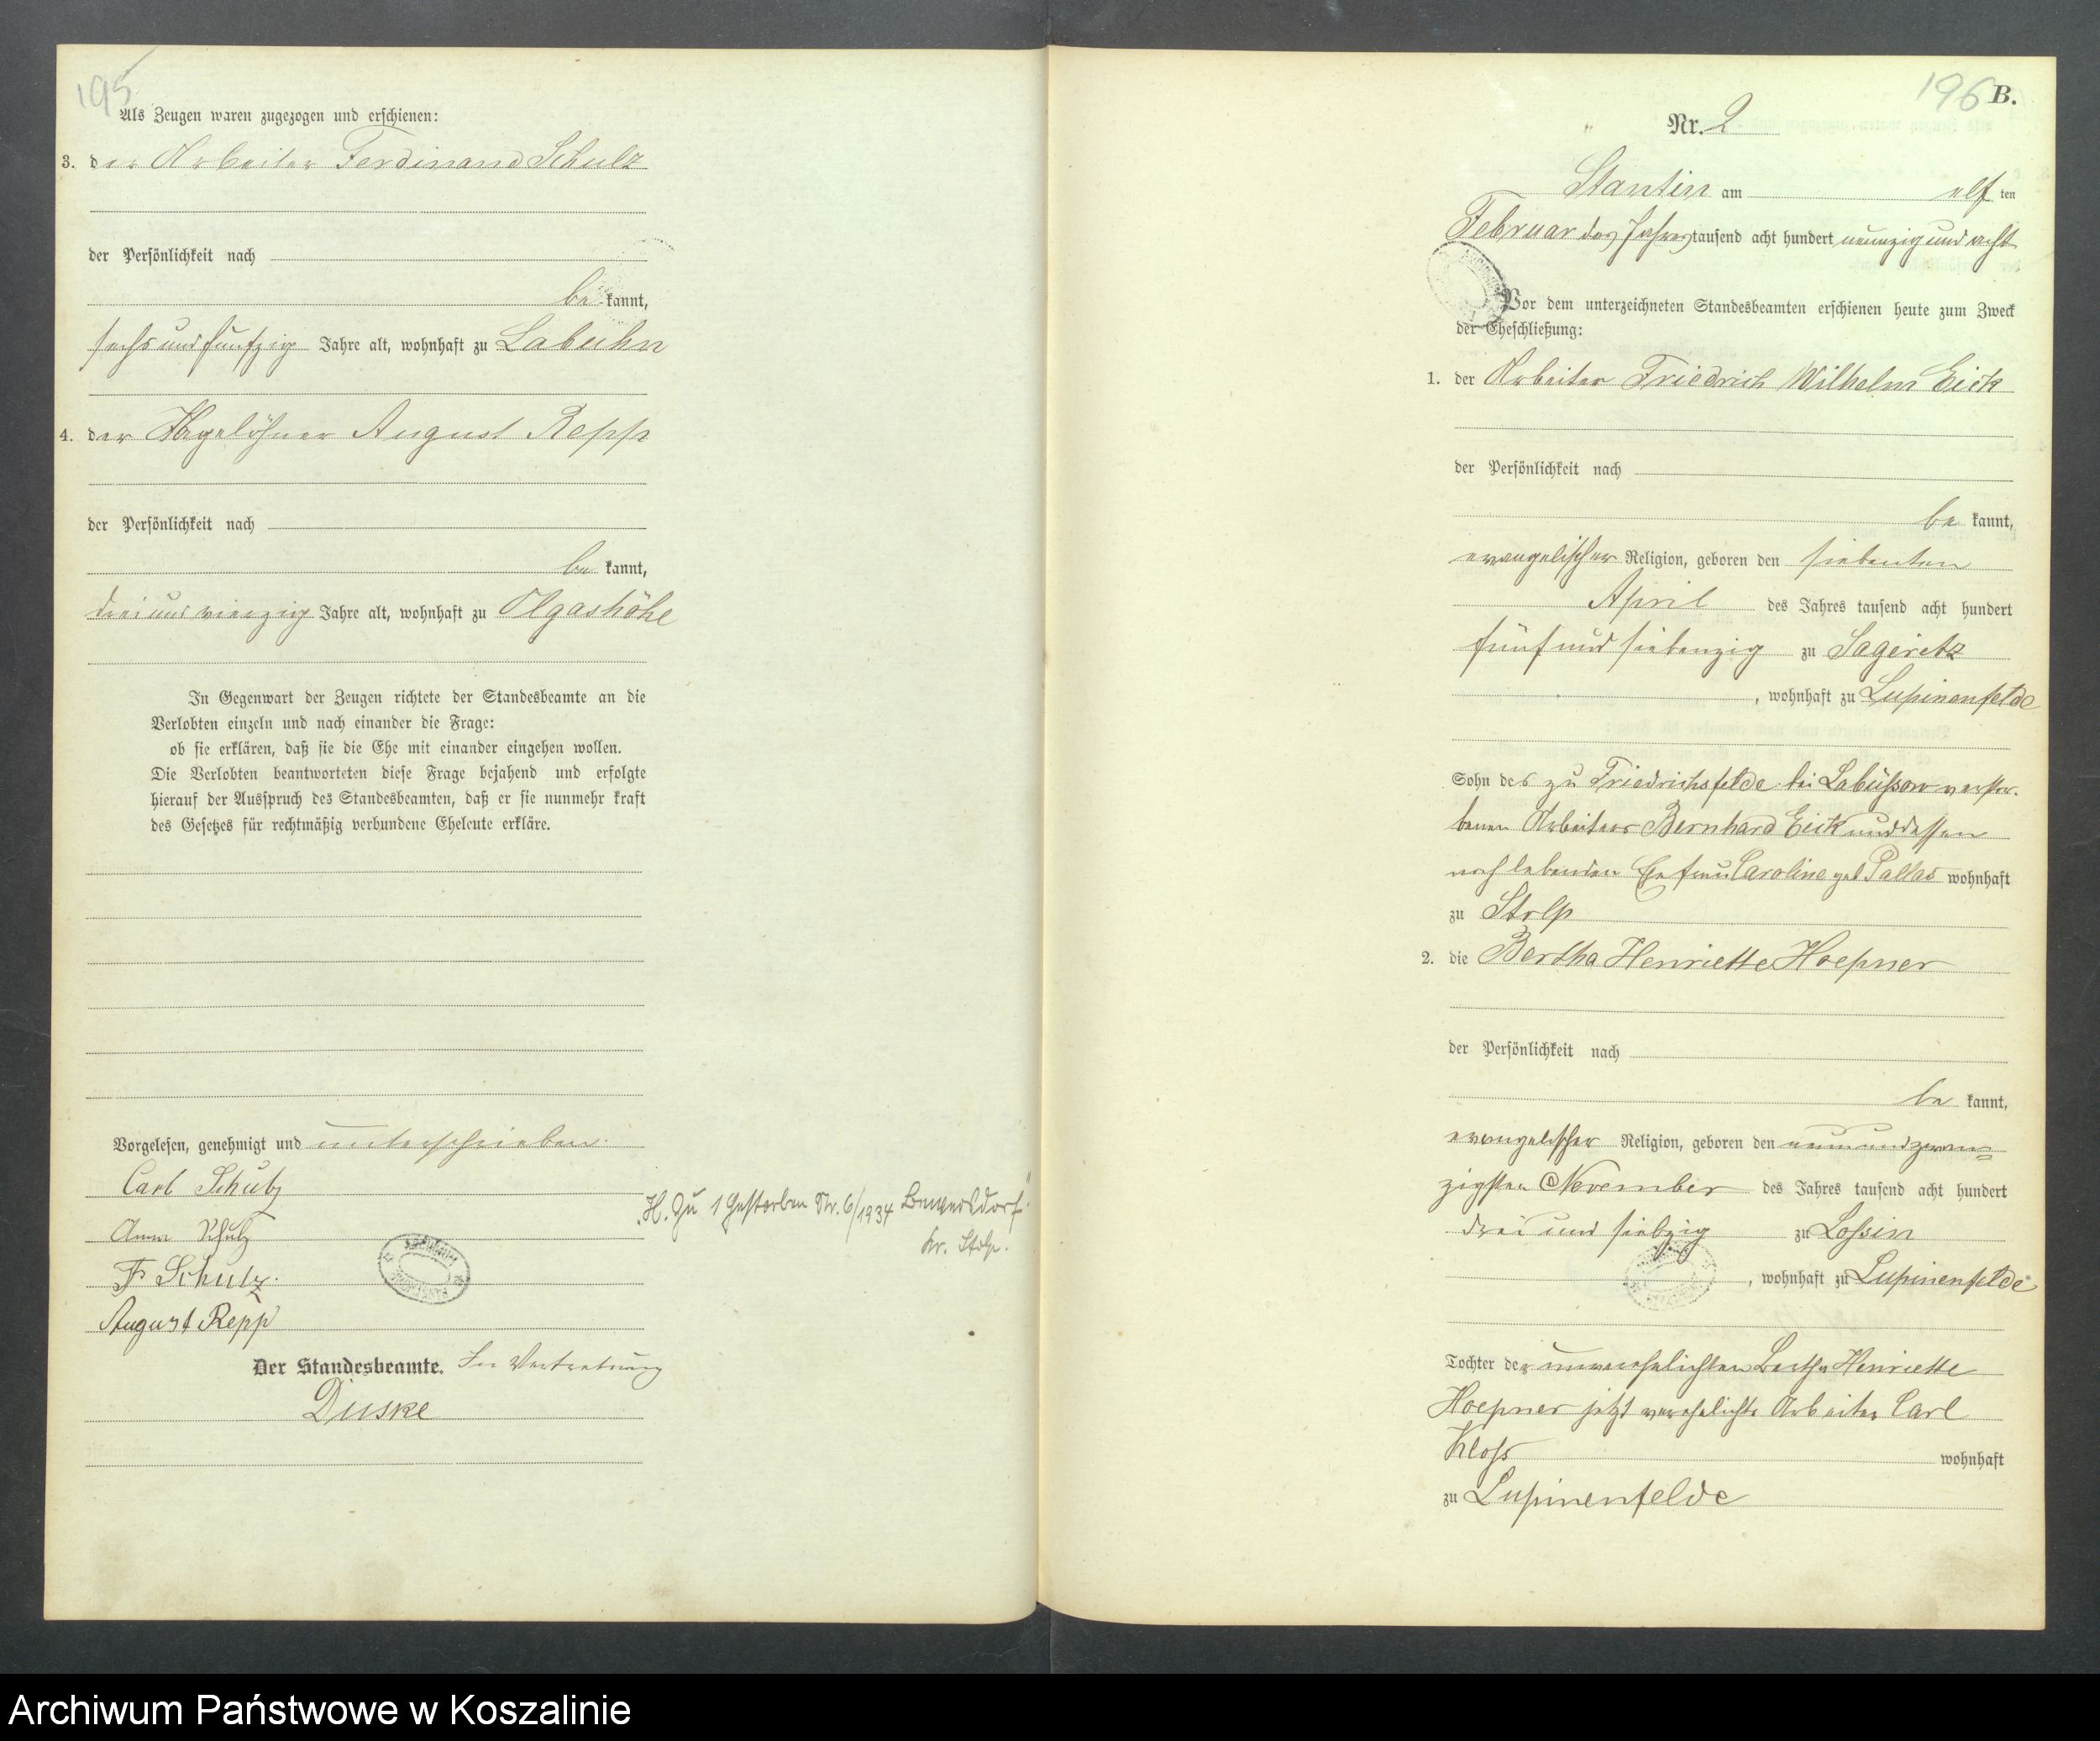 195
Als Zeugen waren zugezogen und erschienen:
3. der Arbeiter Ferdinand Schulz
der Persönlichkeit nach
be kannt,
sechs und fünfzig Jahre alt, wohnhaft zu Labuhn
4. der Tagelöhner August Repp
der Persönlichkeit nach
be kannt,
drei und vierzig Jahre alt, wohnhaft zu Olgashöhe
In Gegenwart der Zeugen richtete der Standesbeamte an die
Verlobten einzeln und nach einander die Frage:
ob sie erklären, daß sie die Ehe mit einander eingehen wollen.
Die Verlobten beantworteten diese Frage bejahend und erfolgte
hierauf der Ausspruch des Standesbeamten, daß er sie nunmehr kraft
des Gesetzes für rechtmäßig verbundene Eheleute erkläre.
Vorgelesen, genehmigt und unterschrieben.
Carl Schulz
Anna Schulz
F Schulz.
August Repp
Der Standesbeamte. In Vertretung
Duske
"H. Zu 1 Gestorben Nr. 6/1934
Kr. Stolp.
196 B.
Nr. 2
Stantin am elf ten
Februar des Jahres tausend acht hundert neunzig und acht
Vor dem unterzeichneten Standesbeamten erschienen heute zum Zweck
der Eheschließung:
1. der Arbeiter Friedrich Wilhelm Eick
der Persönlichkeit nach
be kannt,
evangelischer Religion, geboren den siebenten
April des Jahres tausend acht hundert
fünf und siebenzig zu Sageritz
, wohnhaft zu Lupinenfelde
Sohn des zu Friedrichsfelde bei Labüssow verstor-
benen Arbeiters Bernhard Eick und dessen
noch lebenden Ehefrau Caroline geb Pallas wohnhaft
zu Stolp
2. die Bertha Henriette Hoepner
der Persönlichkeit nach
be kannt,
evangelischer Religion, geboren den neunundzwan=
zigsten November des Jahres tausend acht hundert
drei und siebzig zu Lossin
, wohnhaft zu Lupinenfelde
Tochter der unverehelichten Bertha Henriette
Hoepner jetzt verehelichte Arbeiter Carl
Kloss wohnhaft
zu Lupinenfelde
Archiwum Państwowe w Koszalinie